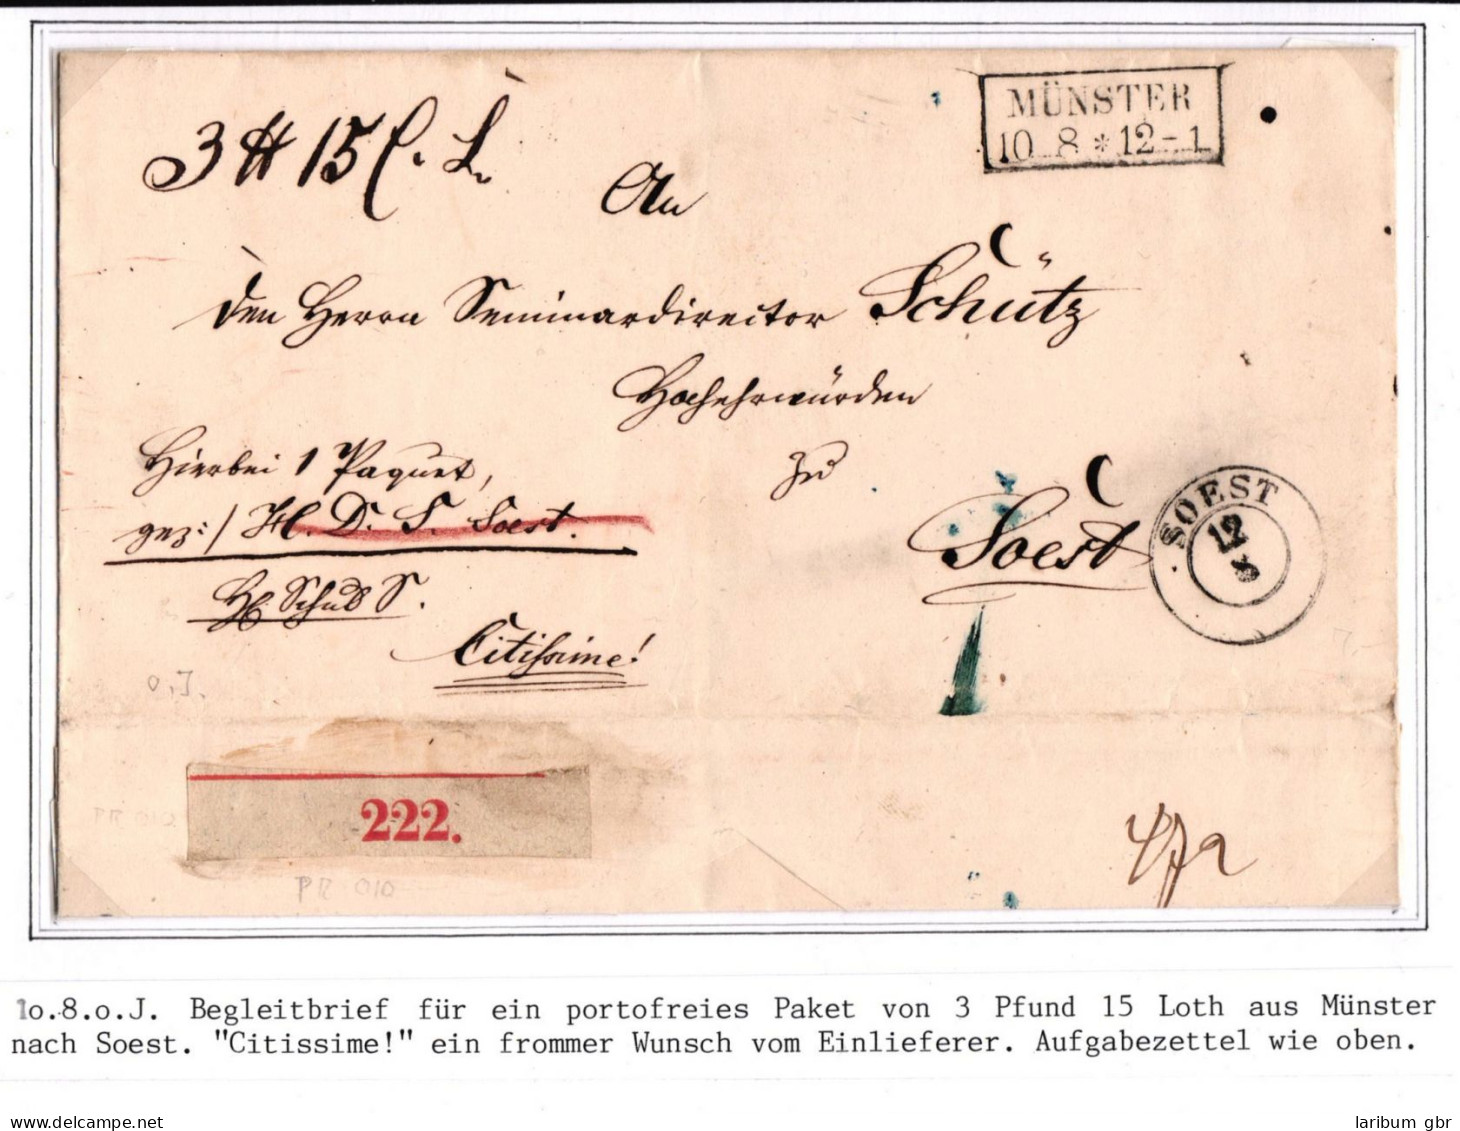 MÜNSTER
10 8 * 12-1
3 ℔ 15 L.
An
den Herrn Seminardirector Schütz
Hochehrwürden
zu
Soest
Hierbei 1 Paquet,
gez:/ H. D. S. Soest.
Schul S.
Citissime!
SOEST
12
8
o.J.
222.
PR 010
PR 010
10.8.o.J. Begleitbrief für ein portofreies Paket von 3 Pfund 15 Loth aus Münster
nach Soest. "Citissime!" ein frommer Wunsch vom Einlieferer. Aufgabezettel wie oben.
www.delcampe.net
laribum gbr